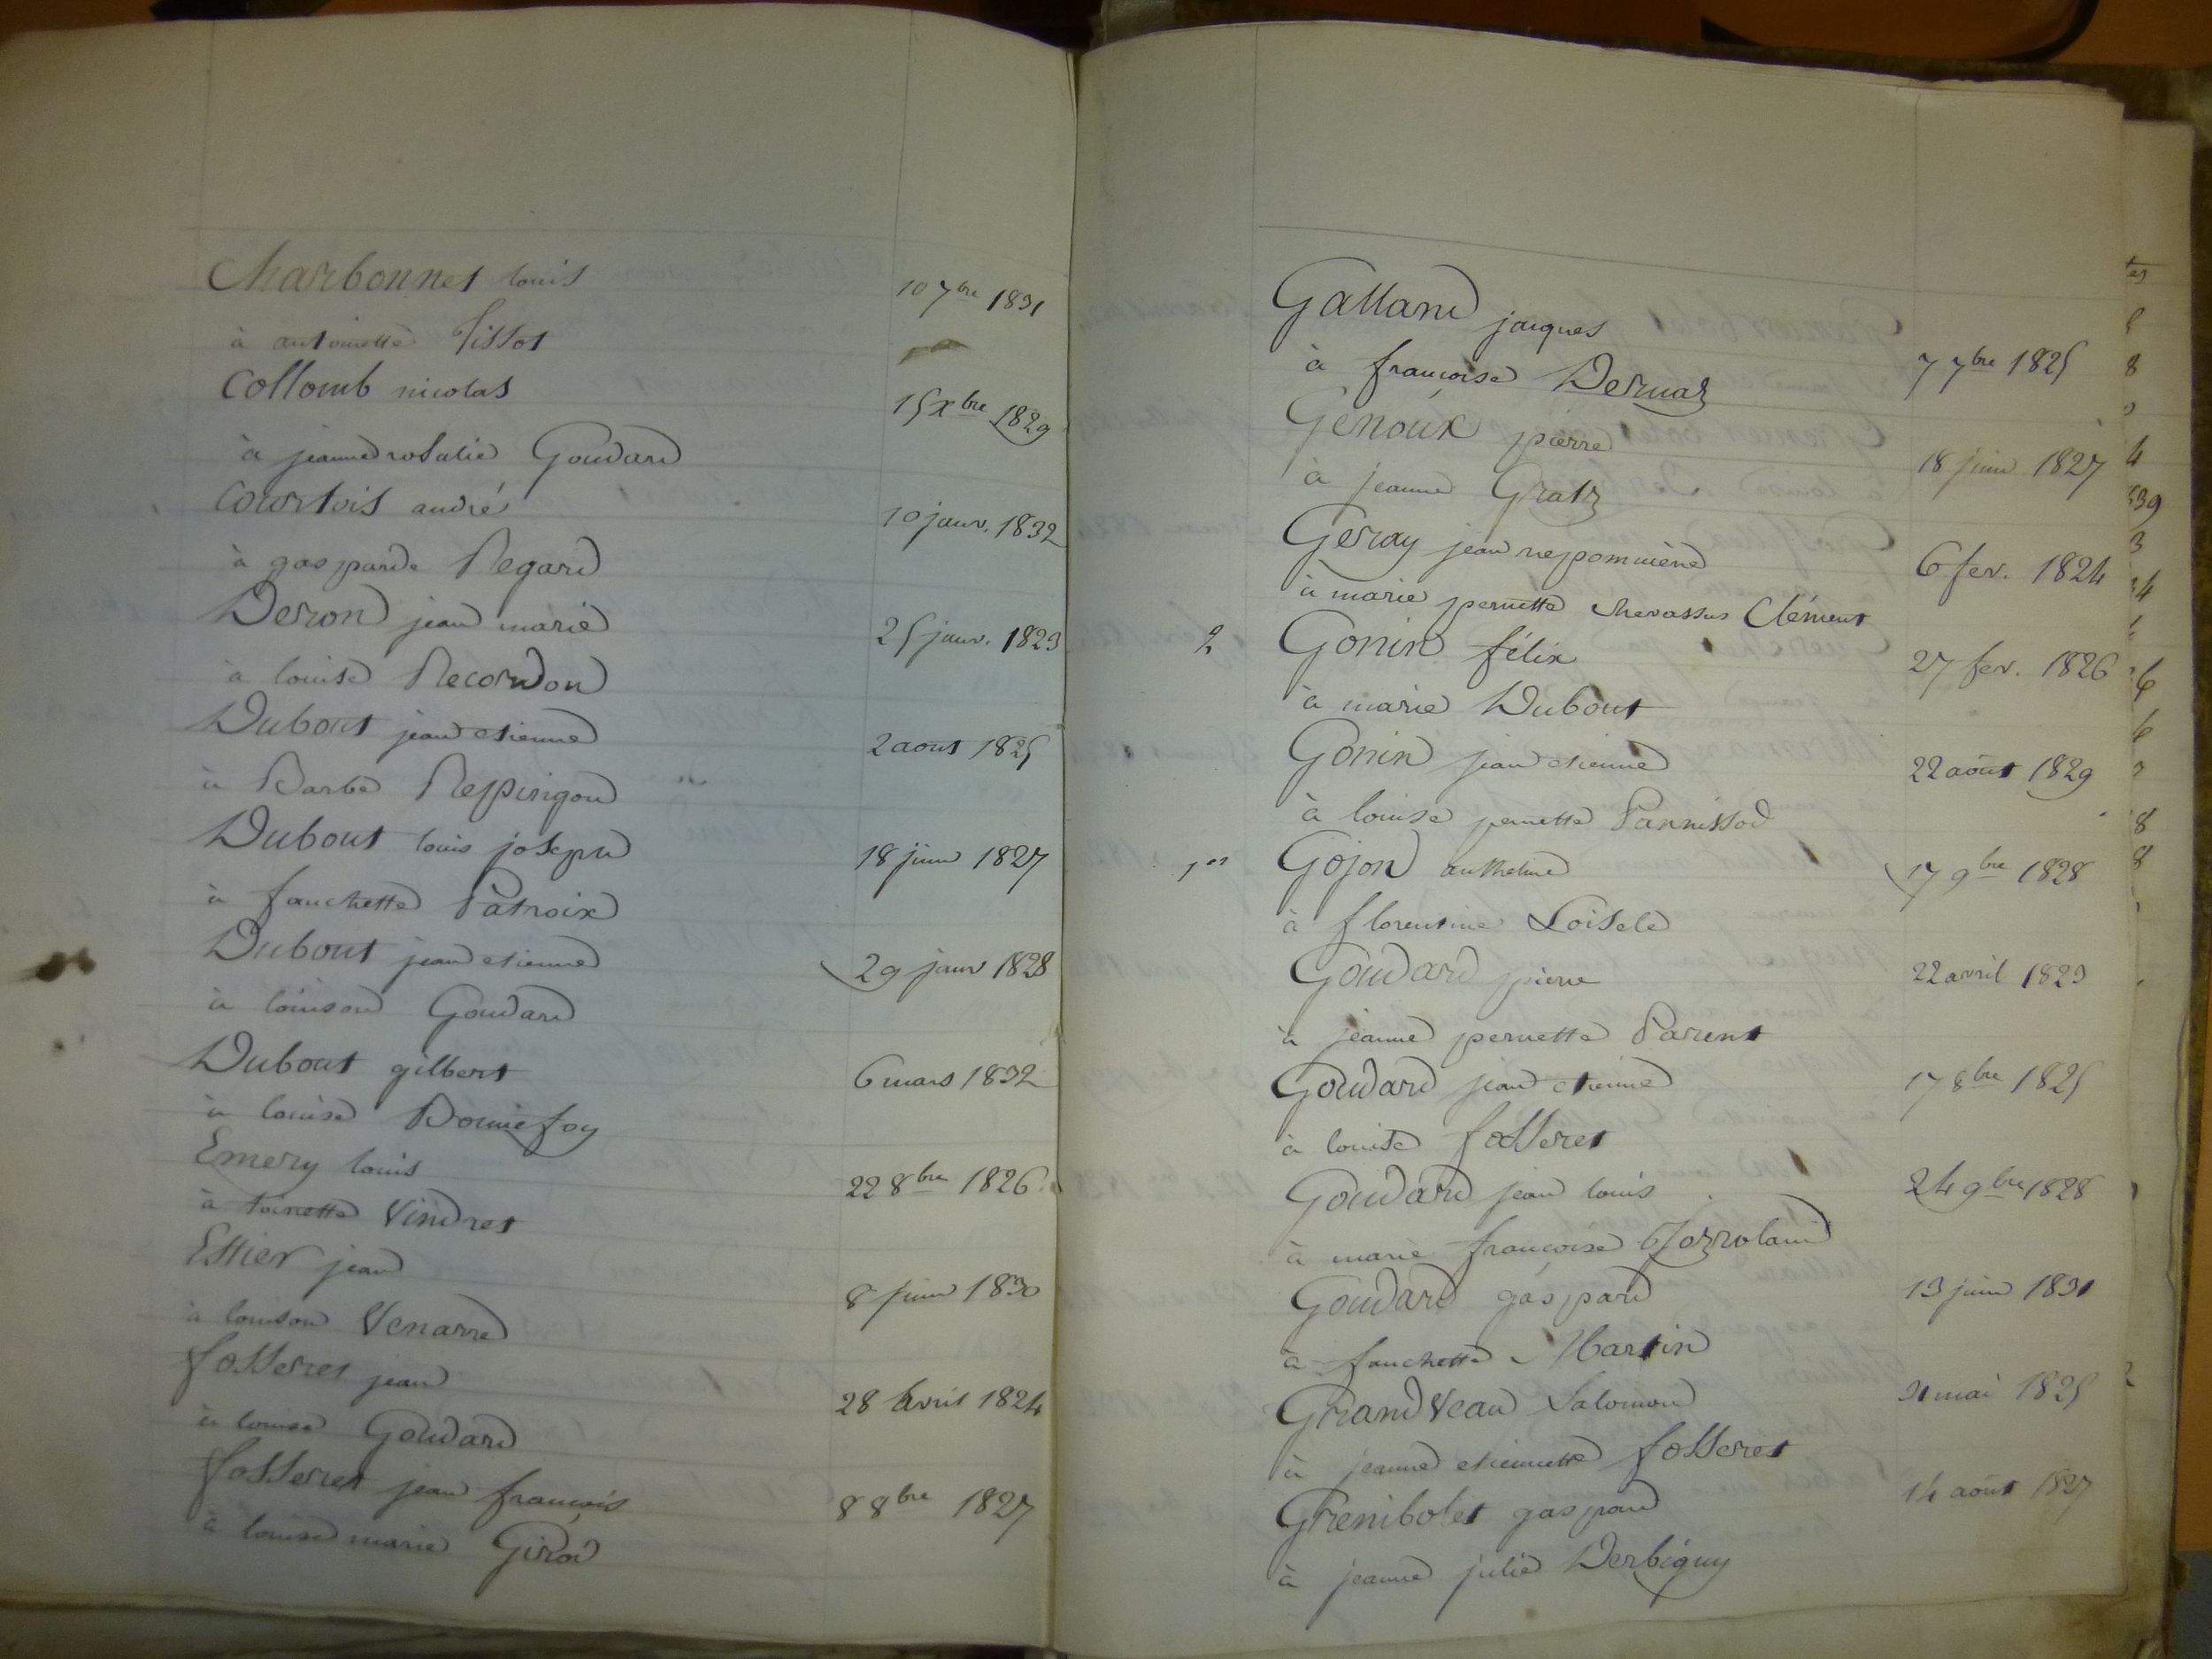 Charbonnet louis 10 7bre 1831
à antoinette Tissot
Collomb nicolas 15 Xbre 1829
à jeanne rosalie Goudard
Courtois andré 10 janv. 1832
à gasparde Regard
Deron jean marie 25 janv. 1823
à louise Recordon
Dubout jean etienne 2 aout 1825
à Barbe Reppingon
Dubout louis joseph 18 juin 1827
à fanchette Patroix
Dubout jean etienne 29 janv 1828
à louison Goudard
Dubout gilbert 6 mars 1832
à louise Bonnefoy
Emery louis 22 8bre 1826
à toinette Vindret
Estier jean 8 juin 1830
à louison Venarre
fosseret jean 28 avril 1824
à louise Goudard
fosseret jean françois 8 8bre 1827
à louise marie Girod
Galland jacques 7 7bre 1825
à françoise Dernaz
Genoux pierre 18 juin 1827
à jeanne Gratz
Geray jean nepomucène 6 fev. 1824
à marie pernette chevassus Clément
2 Gonin félix 27 fev. 1826
à marie Dubout
Gonin jean etienne 22 août 1829
à louise pernette Pannissod
1er Gojon anthelme 17 9bre 1828
à florentine Loisele
Goudard pierre 22 avril 1823
à jeanne pernette Parent
Goudard jean etienne 17 8bre 1825
à louise fosseret
Goudard jean louis 24 9bre 1828
à marie françoise
Goudard gaspard 13 juin 1831
à fanchette Martin
GrandVeau Salomon mai 1825
à jeanne etiennette fosseret
Grenibolet gaspard 14 août 1827
à jeanne julie Derbigny